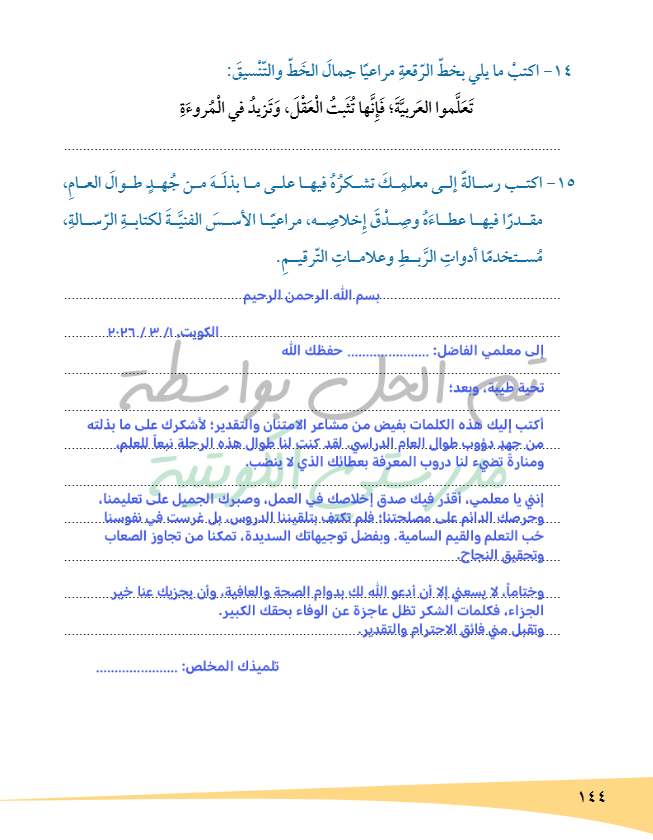 ١٤- اكتبْ ما يلي بخطّ الرّقعةِ مراعيًا جمالَ الخَطّ والتّنْسيقَ:
تَعَلَّموا العَربيَّةَ؛ فَإِنَّها تُثَبتُ الْعَقْلَ، وَتَزيدُ في الْمُروءَةِ
١٥- اكتـب رسـالةً إلى معلمِكَ تشكرُهُ فيها على ما بذلَهَ من جُهدٍ طوالَ العامِ،
مقدرًا فيها عطاءَهُ وصِدْقَ إخلاصِه، مراعيًا الأسسَ الفنيَّةَ لكتابةِ الرّسالةِ،
مُستخدمًا أدواتِ الرَّبطِ وعلاماتِ التّرقيمِ.
بسم الله الرحمن الرحيم
الكويت، ١/ ٣ / ٢٠٢٦
إلى معلمي الفاضل: ...................... حفظك الله
تحية طيبة، وبعد؛
أكتب إليك هذه الكلمات بفيض من مشاعر الامتنان والتقدير؛ لأشكرك على ما بذلته
من جهد دؤوب طوال العام الدراسي. لقد كنت لنا طوال هذه الرحلة نبعاً للعلم،
ومنارةً تضيء لنا دروب المعرفة بعطائك الذي لا ينضب.
إنني يا معلمي، أقدّر فيك صدق إخلاصك في العمل، وصبرك الجميل على تعليمنا،
وحرصك الدائم على مصلحتنا؛ فلم تكتف بتلقيننا الدروس، بل غرست في نفوسنا
حُب التعلم والقيم السامية. وبفضل توجيهاتك السديدة، تمكنا من تجاوز الصعاب
وتحقيق النجاح.
وختاماً، لا يسعني إلا أن أدعو الله لك بدوام الصحة والعافية، وأن يجزيك عنا خير
الجزاء، فكلمات الشكر تظل عاجزة عن الوفاء بحقك الكبير.
وتقبل مني فائق الاحترام والتقدير.
تلميذك المخلص: ......................
تم الحل بواسطة
مدرستي الكويتية
١٤٤